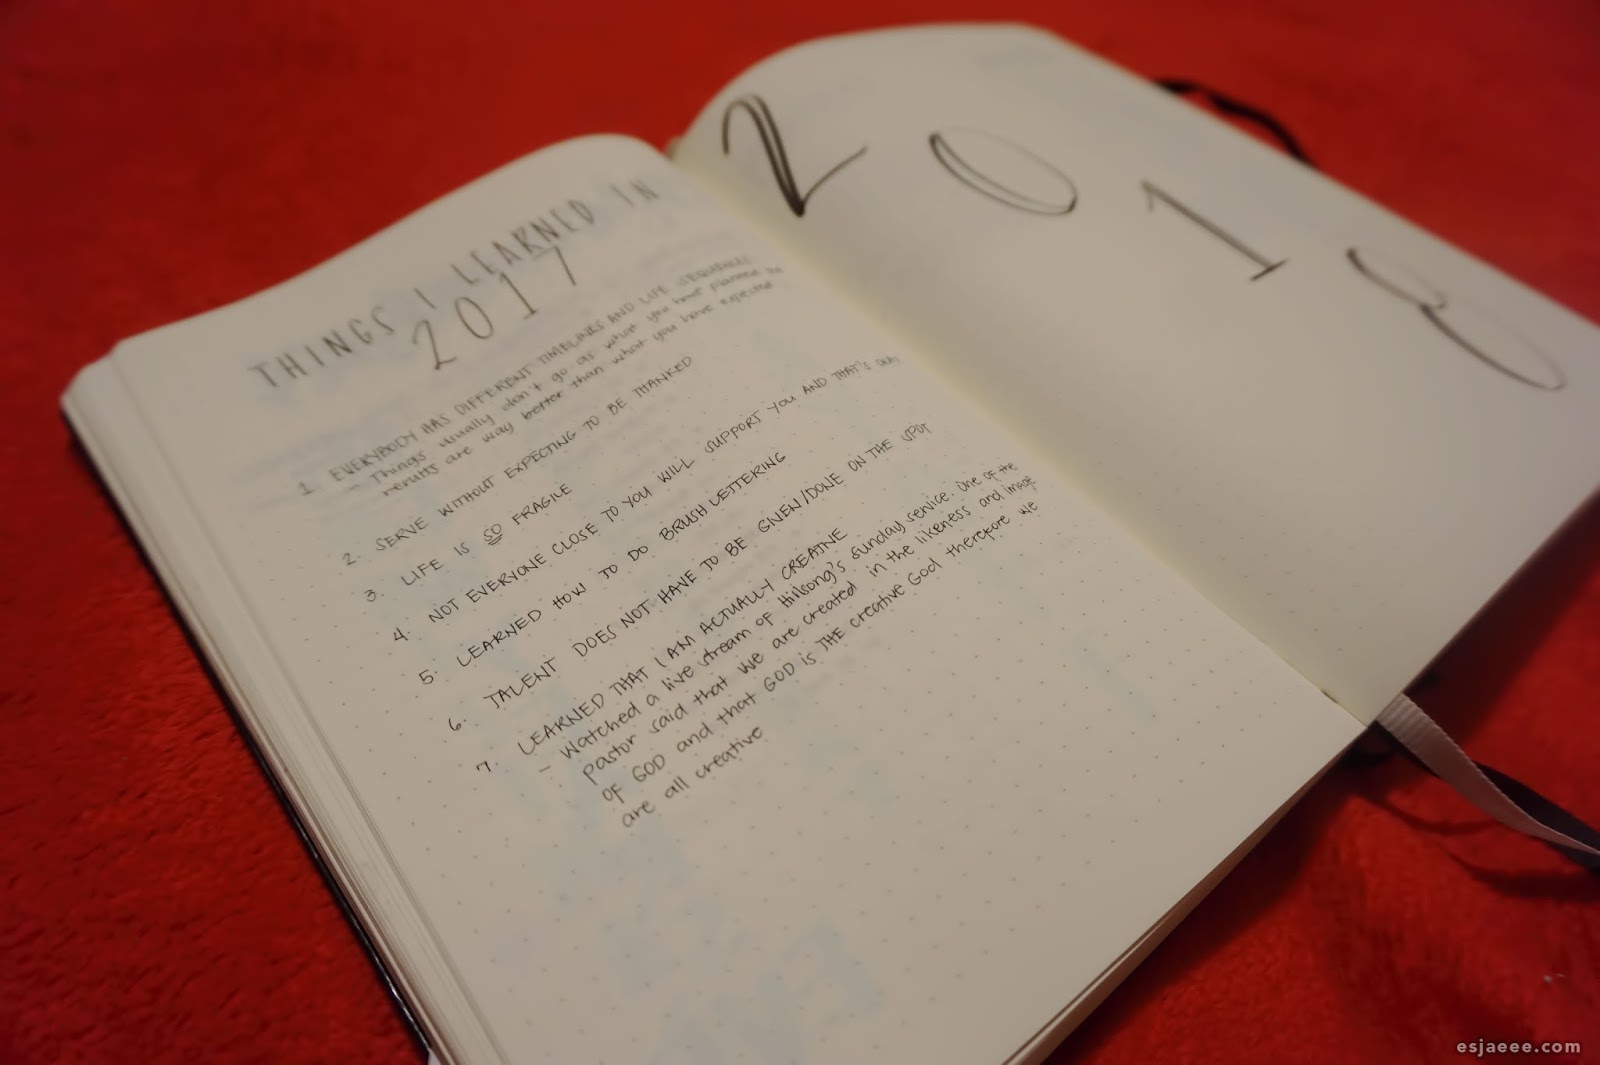 THINGS I LEARNED IN
2017
1. EVERYBODY HAS DIFFERENT TIMELINES AND LIFE SEQUENCES
- Things usually don't go as what you have planned but
results are way better than what you have expected
2. SERVE WITHOUT EXPECTING TO BE THANKED
3. LIFE IS SO FRAGILE
4. NOT EVERYONE CLOSE TO YOU WILL SUPPORT YOU AND THAT'S OKAY
5. LEARNED HOW TO DO BRUSH LETTERING
6. TALENT DOES NOT HAVE TO BE GIVEN/DONE ON THE SPOT
7. LEARNED THAT I AM ACTUALLY CREATIVE
- Watched a live stream of Hillsong's sunday service. One of the
pastor said that we are created in the likeness and image
of GOD and that GOD is THE creative God therefore we
are all creative
2018
esjaeee.com